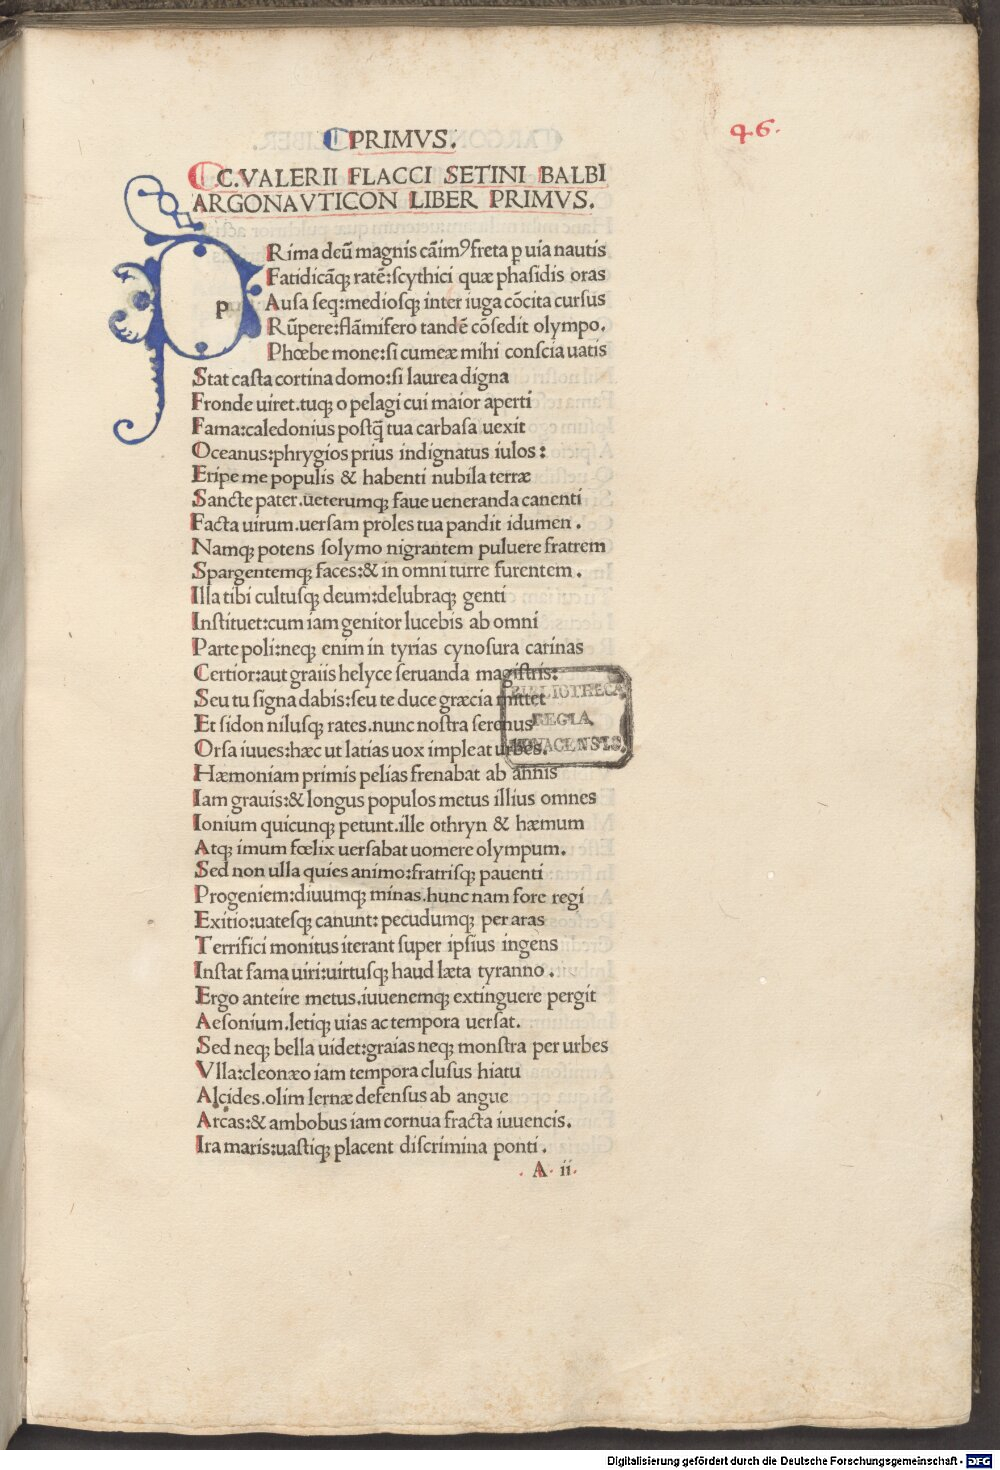 PRIMVS.
46.
C.VALERII FLACCI SETINI BALBI
ARGONAVTICON LIBER PRIMVS.
p
Rima deũ magnis cãimꝰ freta ꝑ uia nautis
Fatidicãq; ratẽ:scythici quæ phasidis oras
Ausa seq̃:mediosq; inter iuga cõcita cursus
Rũpere:flãmifero tandẽ cõsedit olympo.
Phœbe mone:si cumeæ mihi conscia uatis
Stat casta cortina domo:si laurea digna
Fronde uiret.tuq; o pelagi cui maior aperti
Fama:caledonius postq̃ tua carbasa uexit
Oceanus:phrygios prius indignatus iulos:
Eripe me populis & habenti nubila terræ
Sancte pater.ueterumq; faue ueneranda canenti
Facta uirum.uersam proles tua pandit idumen.
Namq; potens solymo nigrantem puluere fratrem
Spargentemq; faces:& in omni turre furentem.
Illa tibi cultusq; deum:delubraq; genti
Instituet:cum iam genitor lucebis ab omni
Parte poli:neq; enim in tyrias cynosura carinas
Certior:aut graiis helyce seruanda magistris:
Seu tu signa dabis:seu te duce græcia mittet
Et sidon nilusq; rates.nunc nostra serenus
Orsa iuues:hæc ut latias uox impleat urbes.
Hæmoniam primis pelias frenabat ab annis
Iam grauis:& longus populos metus illius omnes
Ionium quicunq; petunt.ille othryn & hæmum
Atq; imum fœlix uersabat uomere olympum.
Sed non ulla quies animo:fratrisq; pauenti
Progeniem:diuumq; minas.hunc nam fore regi
Exitio:uatesq; canunt: pecudumq; per aras
Terrifici monitus iterant super ipsius ingens
Instat fama uiri:uirtusq; haud læta tyranno.
Ergo anteire metus.iuuenemq; extinguere pergit
Aesonium.letiq; uias ac tempora uersat.
Sed neq; bella uidet:graias neq; monstra per urbes
Vlla:cleonæo iam tempora clusus hiatu
Alcides.olim lernæ defensus ab angue
Arcas:& ambobus iam cornua fracta iuuencis.
Ira maris:uastiq; placent discrimina ponti.
A ii.
BIBLIOTHECA
REGIA
MONACENSIS.
Digitalisierung gefördert durch die Deutsche Forschungsgemeinschaft - DFG